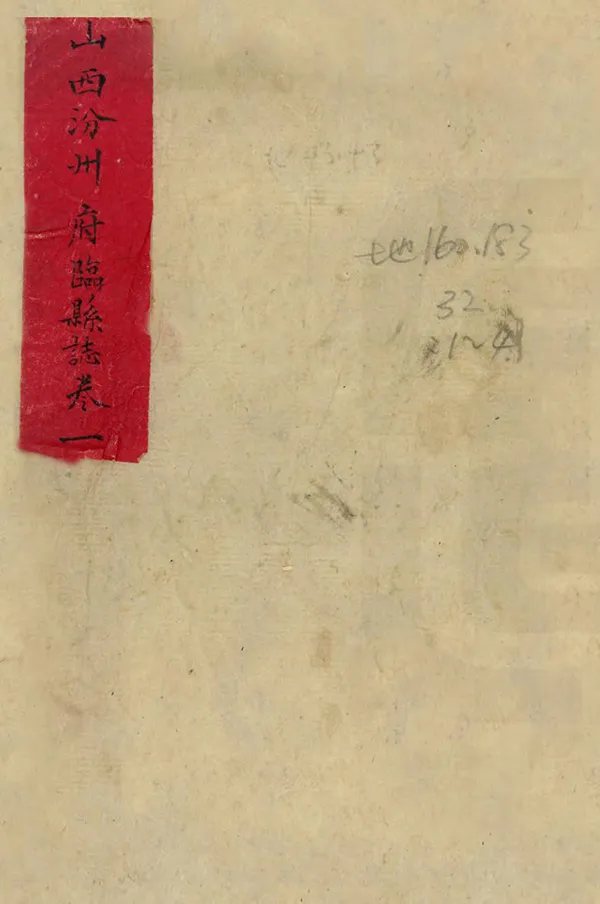 山西汾州府臨縣誌卷一
地160.183
32